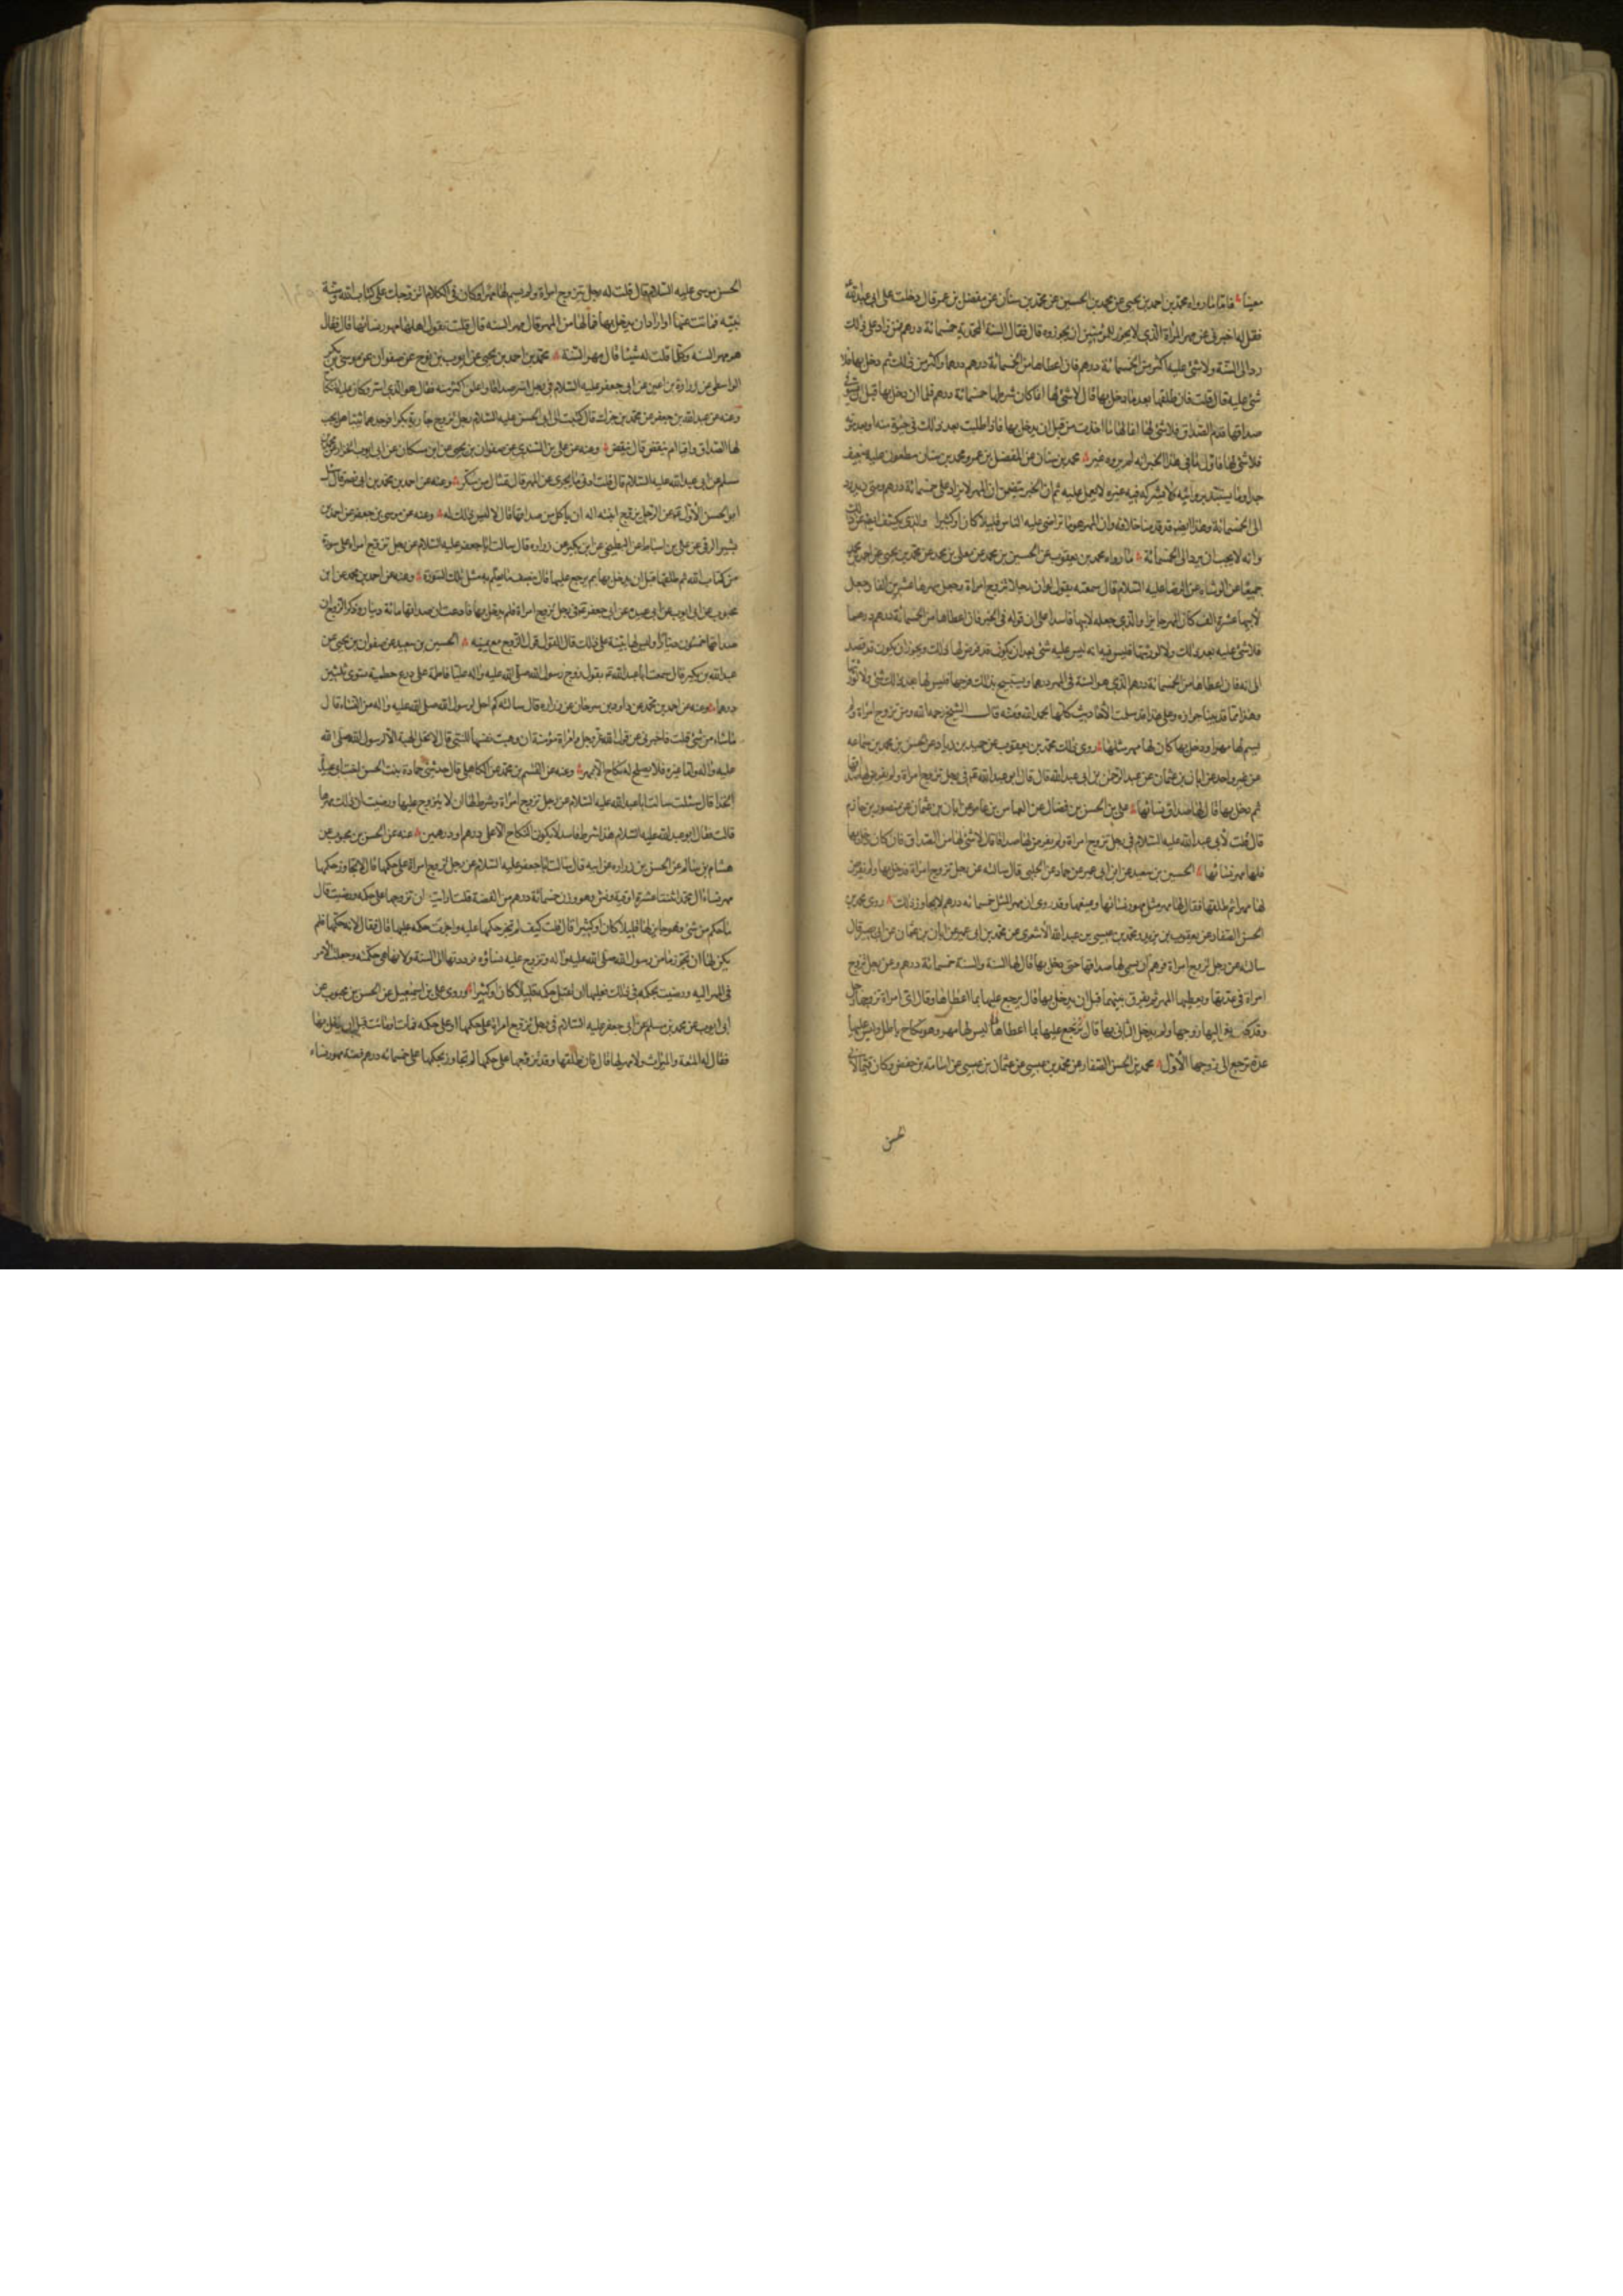 معينا فاما ما رواه محمد بن احمد بن يحيى عن محمد بن الحسين عن محمد بن سنان عن مفضل بن عمر قال دخلت على ابي عبد الله
فقلت له اخبرني عن مهر المراة الذي لا يجوز للمؤمنين ان يجوزوه قال فقال السنة المحمدية خمسمائة درهم فمن زاد على ذلك
رد الى السنة ولا شئ عليه اكثر من الخمسمائة درهم فان اعطاها من الخمسمائة درهم درهما او اكثر من ذلك ثم دخل بها فلا
شئ عليه قال قلت فان طلقها بعد ما دخل بها قال لا شئ لها انما كان شرطها خمسمائة درهم فلما ان دخل بها قبل ان تستوفي
صداقها هدم الصداق فلا شئ لها انما لها ما اخذت من قبل ان يدخل بها فاذا طلبت بعد ذلك في حيوة منه او بعد موته
فلا شئ لها فاول ما في هذا الخبر انه لم يروه غير محمد بن سنان عن المفضل بن عمر ومحمد بن سنان مطعون عليه ضعيف
جدا وما يستبد بروايته ولا يشركه فيه غيره لا يعمل عليه ثم ان الخبر يتضمن ان المهر لا يزاد على خمسمائة درهم ومتى زيد رد
الى الخمسمائة وهذا ايضا قد قدمنا خلافه وان المهر هو ما تراضى عليه الناس قليلا كان او كثيرا والذي يكشف ايضا عن ذلك
وانه لا يجب ان يرد الى الخمسمائة ما رواه محمد بن يعقوب عن الحسين بن محمد عن معلى بن محمد عن محمد بن يحيى عن احمد بن محمد
جميعا عن الوشاء عن الرضا عليه السلام قال سمعته يقول لو ان رجلا تزوج امراة وجعل مهرها عشرين الفا وجعل
لابيها عشرة الف كان المهر جايزا والذي جعله لابيها فاسدا على ان قوله في الخبر فان اعطاها من الخمسمائة درهم درهما
فلا شئ عليه بعد ذلك ولا لورثتها فليس فيه انه ليس عليه شئ بعد ان يكون قد فرض لها ذلك ويجوز ان يكون قد قصد
الى انه فان اعطاها من الخمسمائة درهم الذي هو السنة في المهر درهما ويستبيح بذلك فرجها فليس لها بعد ذلك شئ ولا لورثتها
وهذا مما قد بينا جوازه وعلى هذا قد سلمت الاحاديث كلها بحمد الله ومنه قال الشيخ رحمه الله ومن تزوج امراة ولم
يسم لها مهرا ودخل بها كان لها مهر مثلها روى ذلك محمد بن يعقوب عن حميد بن زياد عن الحسن بن محمد بن سماعة
عن غير واحد عن ابان بن عثمان عن عبد الرحمن بن ابي عبد الله قال قال ابو عبد الله ع في رجل تزوج امراة ولم يفرض لها صداقها
ثم دخل بها قال لها صداق نسائها علي بن الحسن بن فضال عن العباس بن عامر عن ابان بن عثمان عن منصور بن حازم
قال قلت لابي عبد الله عليه السلام في رجل تزوج امراة ولم يفرض لها صداقا قال لا شئ لها من الصداق فان كان دخل بها
فلها مهر نسائها الحسين بن سعيد عن ابن ابي عمير عن حماد عن الحلبي قال سالته عن رجل تزوج امراة فدخل بها ولم يفرض
لها مهرا ثم طلقها فقال لها مهر مثل مهور نسائها ويمتعها وقد روى ان مهر المثل خمسمائة درهم لا يجاوز ذلك روى محمد بن
الحسن الصفار عن يعقوب بن يزيد ومحمد بن عيسى بن عبد الله الاشعري عن محمد بن ابي عمير عن ابان بن عثمان عن ابي بصير قال
سالته عن رجل تزوج امراة فوهم ان يسمي لها صداقها حتى دخل بها قال لها السنة والسنة خمسمائة درهم وعن رجل تزوج
امراة في عدتها ويعطيها المهر ثم يفرق بينهما قبل ان يدخل بها قال يرجع عليها بما اعطاها وقال اي امراة تزوجها رجل
وقد كان نعي اليها زوجها ولم يدخل الثاني بها قال يرجع عليها بما اعطاها ليس لها مهر وهو نكاح باطل وليس عليها
عدة ترجع الى زوجها الاول محمد بن الحسن الصفار عن محمد بن عيسى عن عثمان بن عيسى عن اسامة بن حفص وكان قيما لابي
الحسن
الحسن موسى عليه السلام قال قلت له رجل يتزوج امراة ولم يسم لها مهرا وكان في الكلام اتزوجك على كتاب الله وسنة
نبيه فمات عنها او اراد ان يدخل بها فما لها من المهر قال مهر السنة قال قلت يقول اهلها مهور نسائها قال فقال
هو مهر السنة وكلما قلت له شيئا قال مهر السنة محمد بن احمد بن يحيى عن ايوب بن نوح عن صفوان عن موسى بن بكر
الواسطي عن زرارة بن اعين عن ابي جعفر عليه السلام في رجل اسر صداقا واعلن اكثر منه فقال هو الذي اسر وكان عليه النكاح
وعنه عن عبد الله بن جعفر عن محمد بن جزك قال كتبت الى ابي الحسن عليه السلام رجل تزوج جارية بكرا فوجدها ثيبا هل يجب
لها الصداق وافيا ام ينتقص قال ينتقص وعنه عن علي بن السندي عن صفوان بن يحيى عن ابن مسكان عن ابي ايوب الخزاز عن محمد بن
مسلم عن ابي عبد الله عليه السلام قال قلت ادنى ما يجزي من المهر قال تمثال من سكر وعنه عن احمد بن محمد بن ابي نصر قال سئل
ابو الحسن الاول ع عن الرجل يزوج ابنته اله ان ياكل من صداقها قال لا ليس ذلك له وعنه عن موسى بن جعفر عن احمد بن
بشير الرقي عن علي بن اسباط عن البطيخي عن ابن بكير عن زرارة قال سالت ابا جعفر عليه السلام عن رجل تزوج امراة على سورة
من كتاب الله ثم طلقها قبل ان يدخل بها بم يرجع عليها قال بنصف ما يعلم به مثل تلك السورة وعنه عن احمد بن محمد عن ابن
محبوب عن ابي ايوب عن ابي عبيدة عن ابي جعفر ع في رجل تزوج امراة فلم يدخل بها فادعت ان صداقها مائة دينار وذكر الزوج ان
صداقها خمسون دينارا وليس لها بينة على ذلك قال القول قول الزوج مع يمينه الحسين بن سعيد عن صفوان بن يحيى عن
عبد الله بن بكير قال سمعت ابا عبد الله ع يقول زوج رسول الله صلى الله عليه واله عليا فاطمة على درع حطمية يسوى ثلثين
درهما وعنه عن احمد بن محمد عن داود بن سرحان عن زرارة قال سالته كم احل لرسول الله صلى الله عليه واله من النساء قال
ما شاء من شئ قلت فاخبرني عن قول الله عز وجل وامراة مؤمنة ان وهبت نفسها للنبي قال لا تحل الهبة الا لرسول الله صلى الله
عليه واله واما غيره فلا يصلح له نكاح الا بمهر وعنه عن القاسم بن محمد عن الكاهلي قال حدثتني حمادة بنت الحسن اخت ابي عبيدة
الحذاء قال سئلت سالت ابا عبد الله عليه السلام عن رجل تزوج امراة وشرط لها ان لا يتزوج عليها ورضيت ان ذلك مهرها
قالت فقال ابو عبد الله عليه السلام هذا شرط فاسد لا يكون النكاح الا على درهم او درهمين عنه عن الحسن بن محبوب عن
هشام بن سالم عن الحسن بن زرارة عن ابيه قال سالت ابا جعفر عليه السلام عن رجل تزوج امراة على حكمها قال لا يتجاوز حكمها
مهر نساء ال محمد اثنتا عشرة اوقية ونش وهو وزن خمسمائة درهم من الفضة قلت ارايت ان تزوجها على حكمه ورضيت قال
ما حكم من شئ فهو جايز لها قليلا كان او كثيرا قال قلت كيف لم تجز حكمها عليه واجزت حكمه عليها قال فقال لانه حكمها فلم
يكن لها ان تجوز ما سن رسول الله صلى الله عليه واله وتزوج عليه نساؤه فرددتها الى السنة ولانها هي حكمته وجعلت الامر
في المهر اليه ورضيت بحكمه في ذلك فعليها ان تقبل حكمه قليلا كان او كثيرا وروى علي بن اسمعيل عن الحسن بن محبوب عن
ابي ايوب عن محمد بن مسلم عن ابي جعفر عليه السلام في رجل تزوج امراة على حكمها او على حكمه فمات او ماتت قبل ان يدخل بها
فقال لها المتعة والميراث ولا مهر لها قال فان طلقها وقد تزوجها على حكمها لم يتجاوز بحكمها على خمسمائة درهم فضة مهور نساء